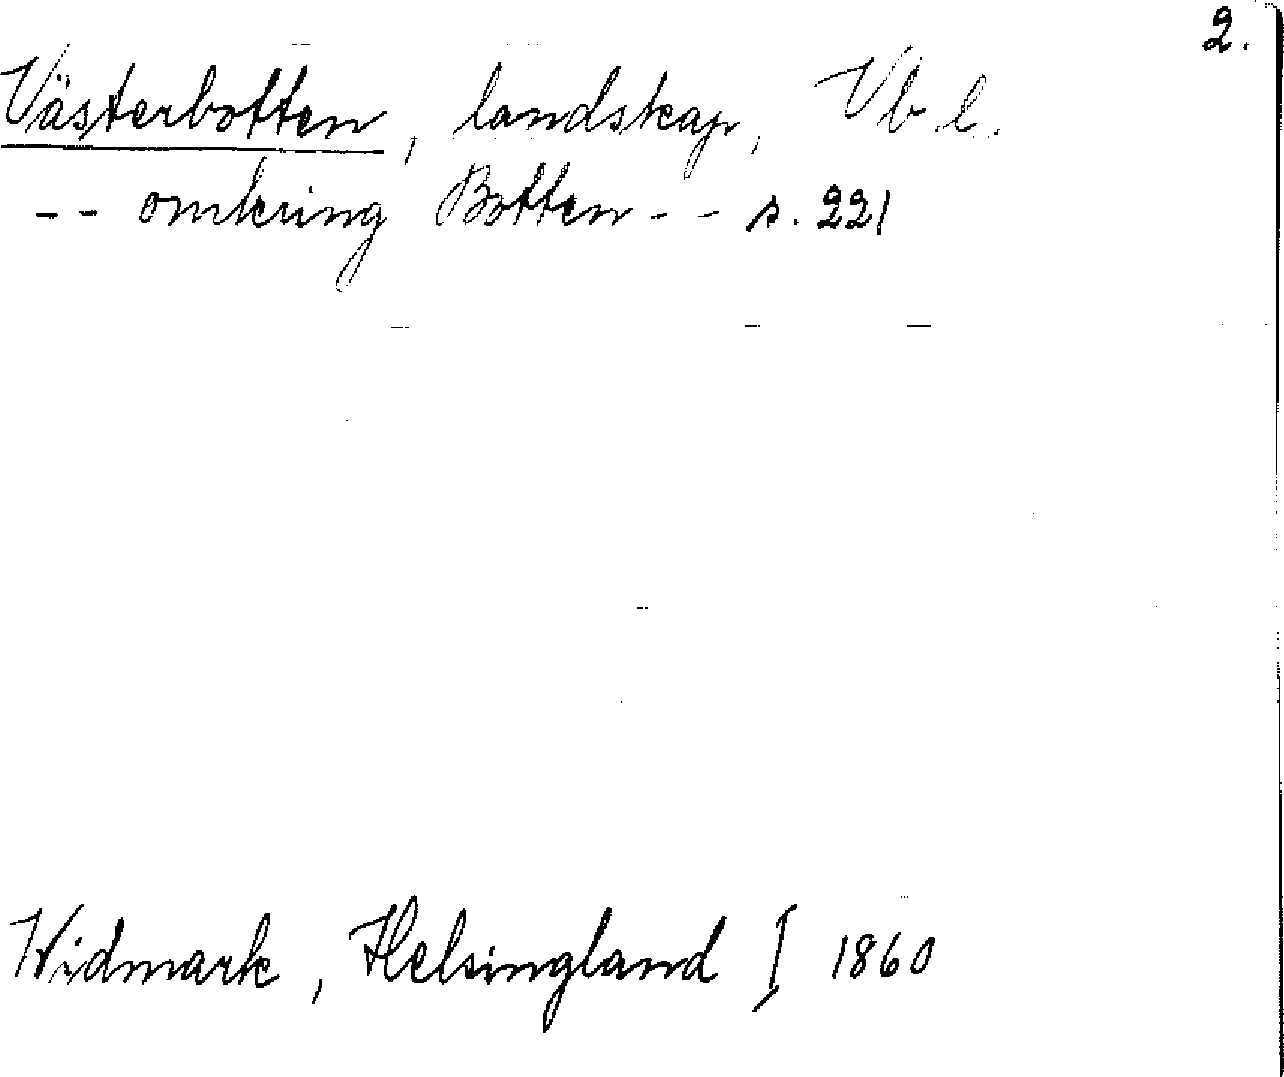 2.
Västerbotten, landskap, Vb.l.
-- omkring Botten -- s. 221
Widmark, Helsingland I 1860